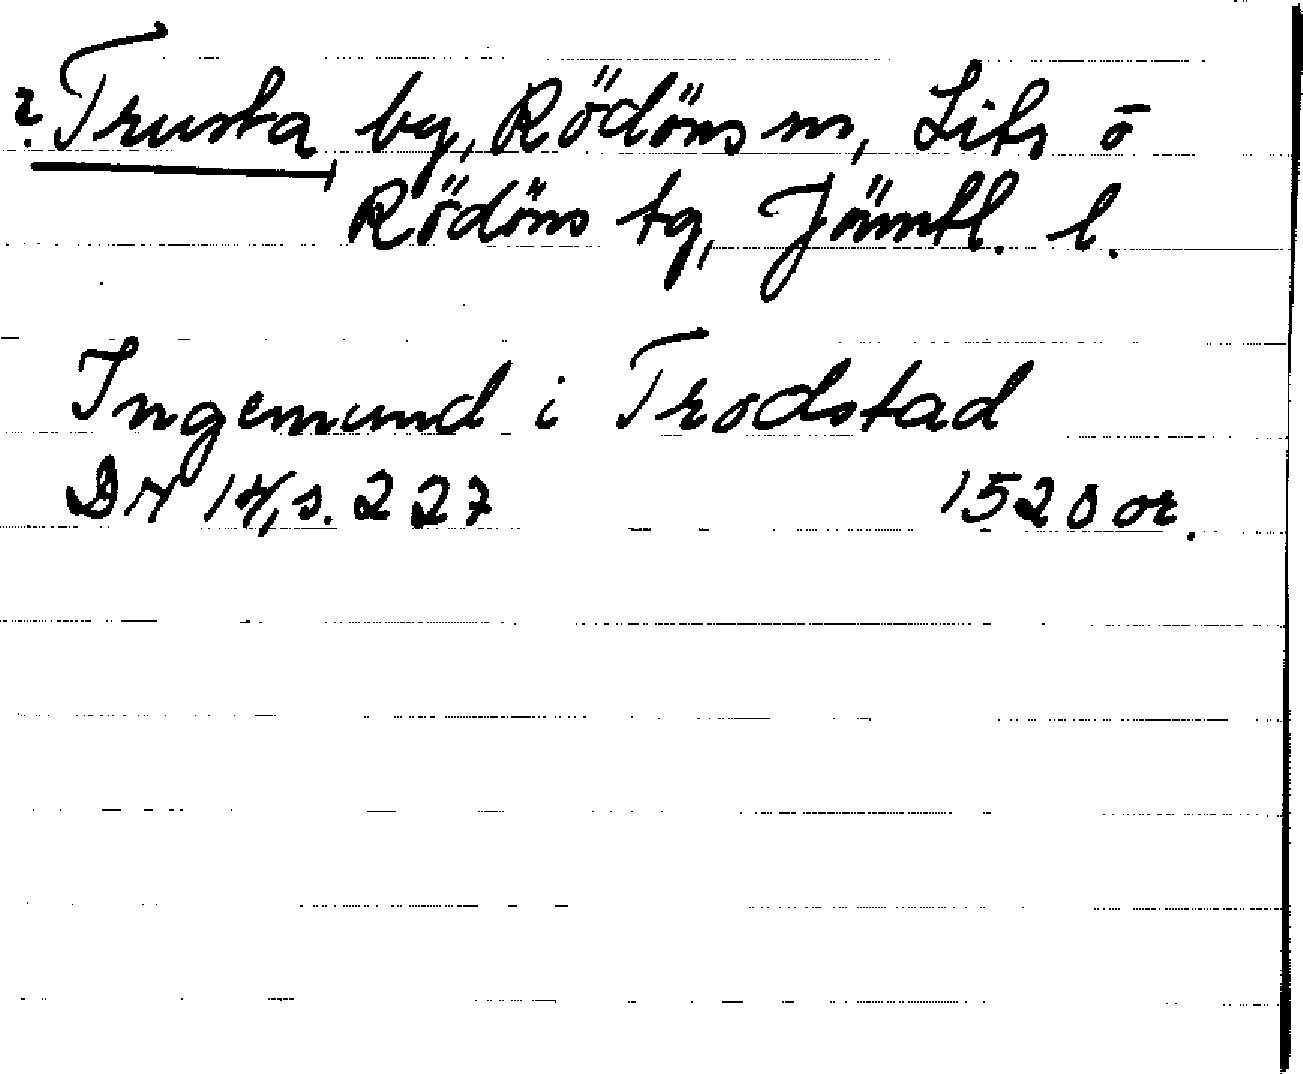 ? Trusta, by, Rödöns sn, Lits o
Rödöns tg, Jämtl. l.
Ingemund i Trodstad
DN 14, s. 227 1520 or.